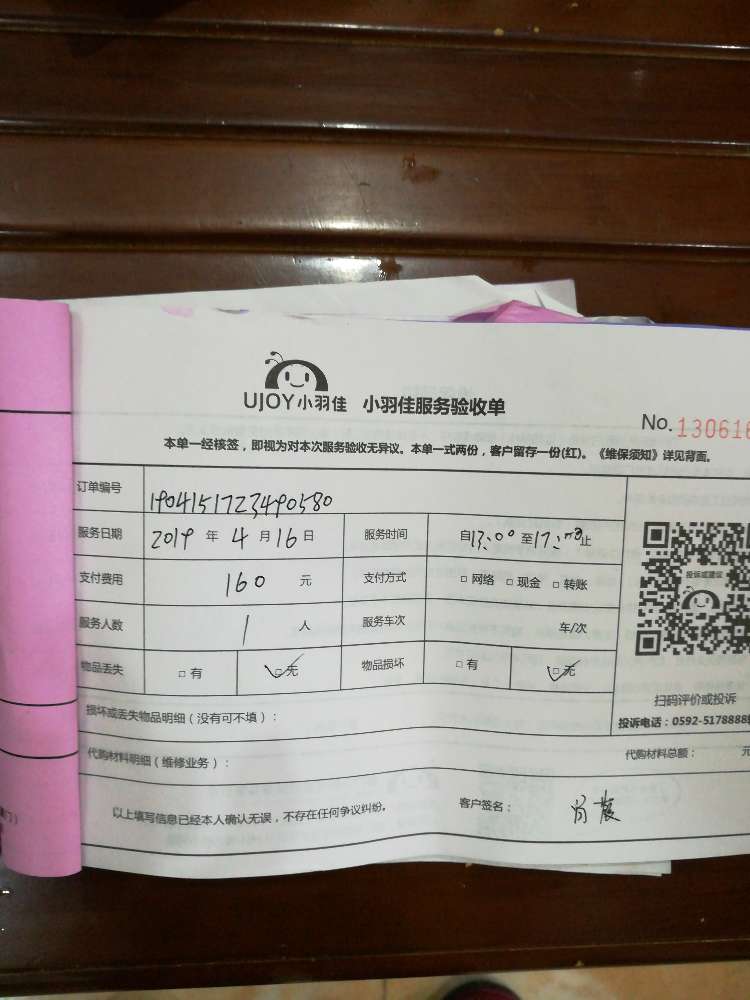 UJOY小羽佳 小羽佳服务验收单
No. 130616
本单一经核签，即视为对本次服务验收无异议。本单一式两份，客户留存一份(红)。《维保须知》详见背面。
订单编号 1904151723490580
服务日期 2019 年 4 月 16 日 服务时间 自13:00至17:00止
支付费用 160 元 支付方式 □ 网络 □ 现金 □ 转账
服务人数 1 人 服务车次 车/次
物品丢失 □ 有 □ 无 物品损坏 □ 有 □ 无
投诉或建议
扫码评价或投诉
投诉电话：0592-5178888
损坏或丢失物品明细（没有可不填）：
代购材料明细（维修业务）： 代购材料总额： 元
以上填写信息已经本人确认无误，不存在任何争议纠纷。 客户签名：